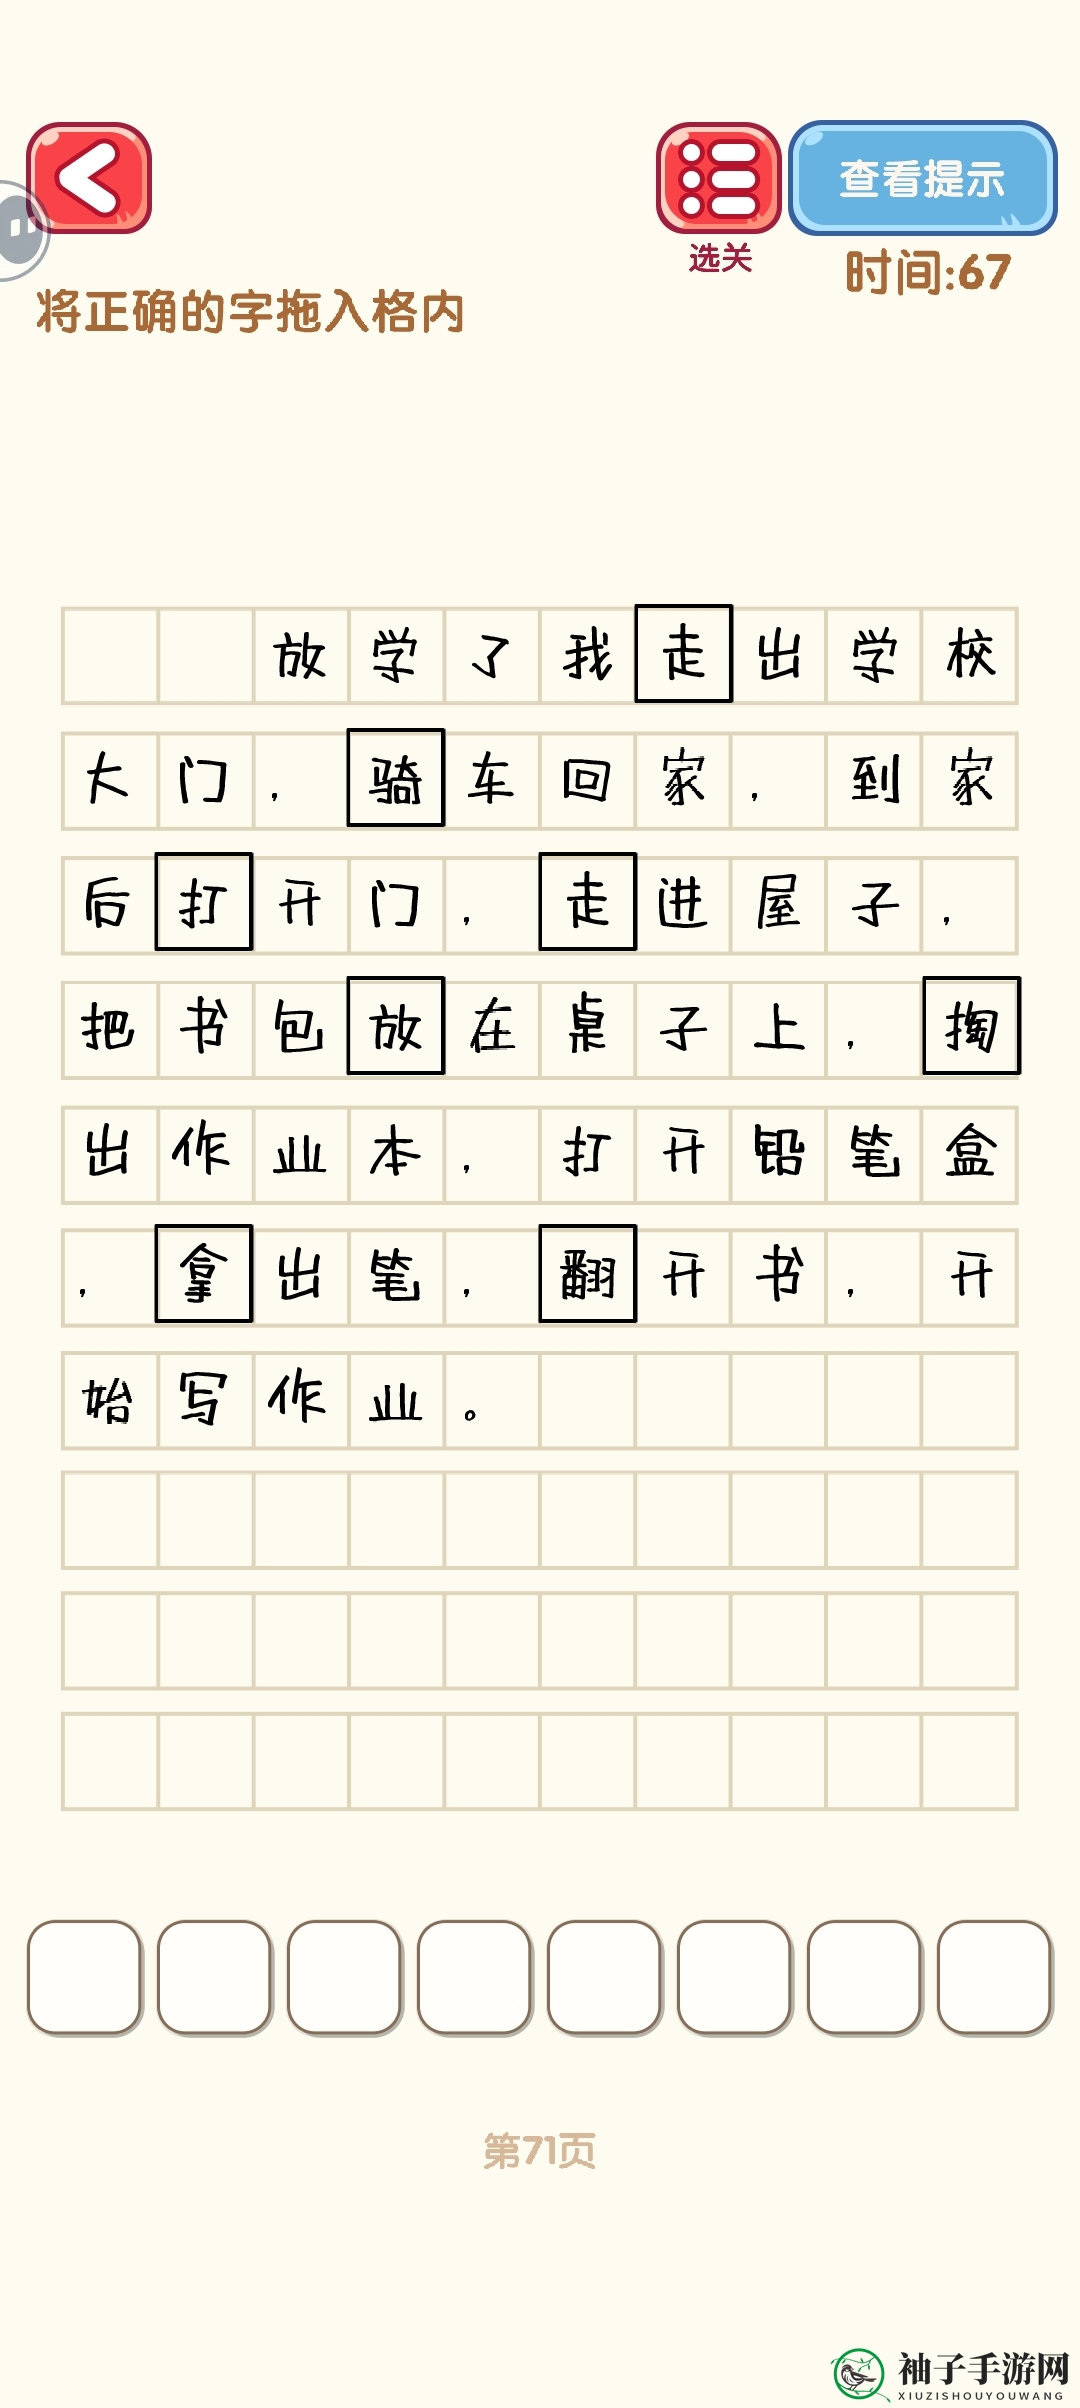 查看提示
选关
时间:67
将正确的字拖入格内
放学了我走出学校
大门，骑车回家，到家
后打开门，走进屋子，
把书包放在桌子上，掏
出作业本，打开铅笔盒
，拿出笔，翻开书，开
始写作业。
第71页
袖子手游网
XIUZISHOUYOUWANG